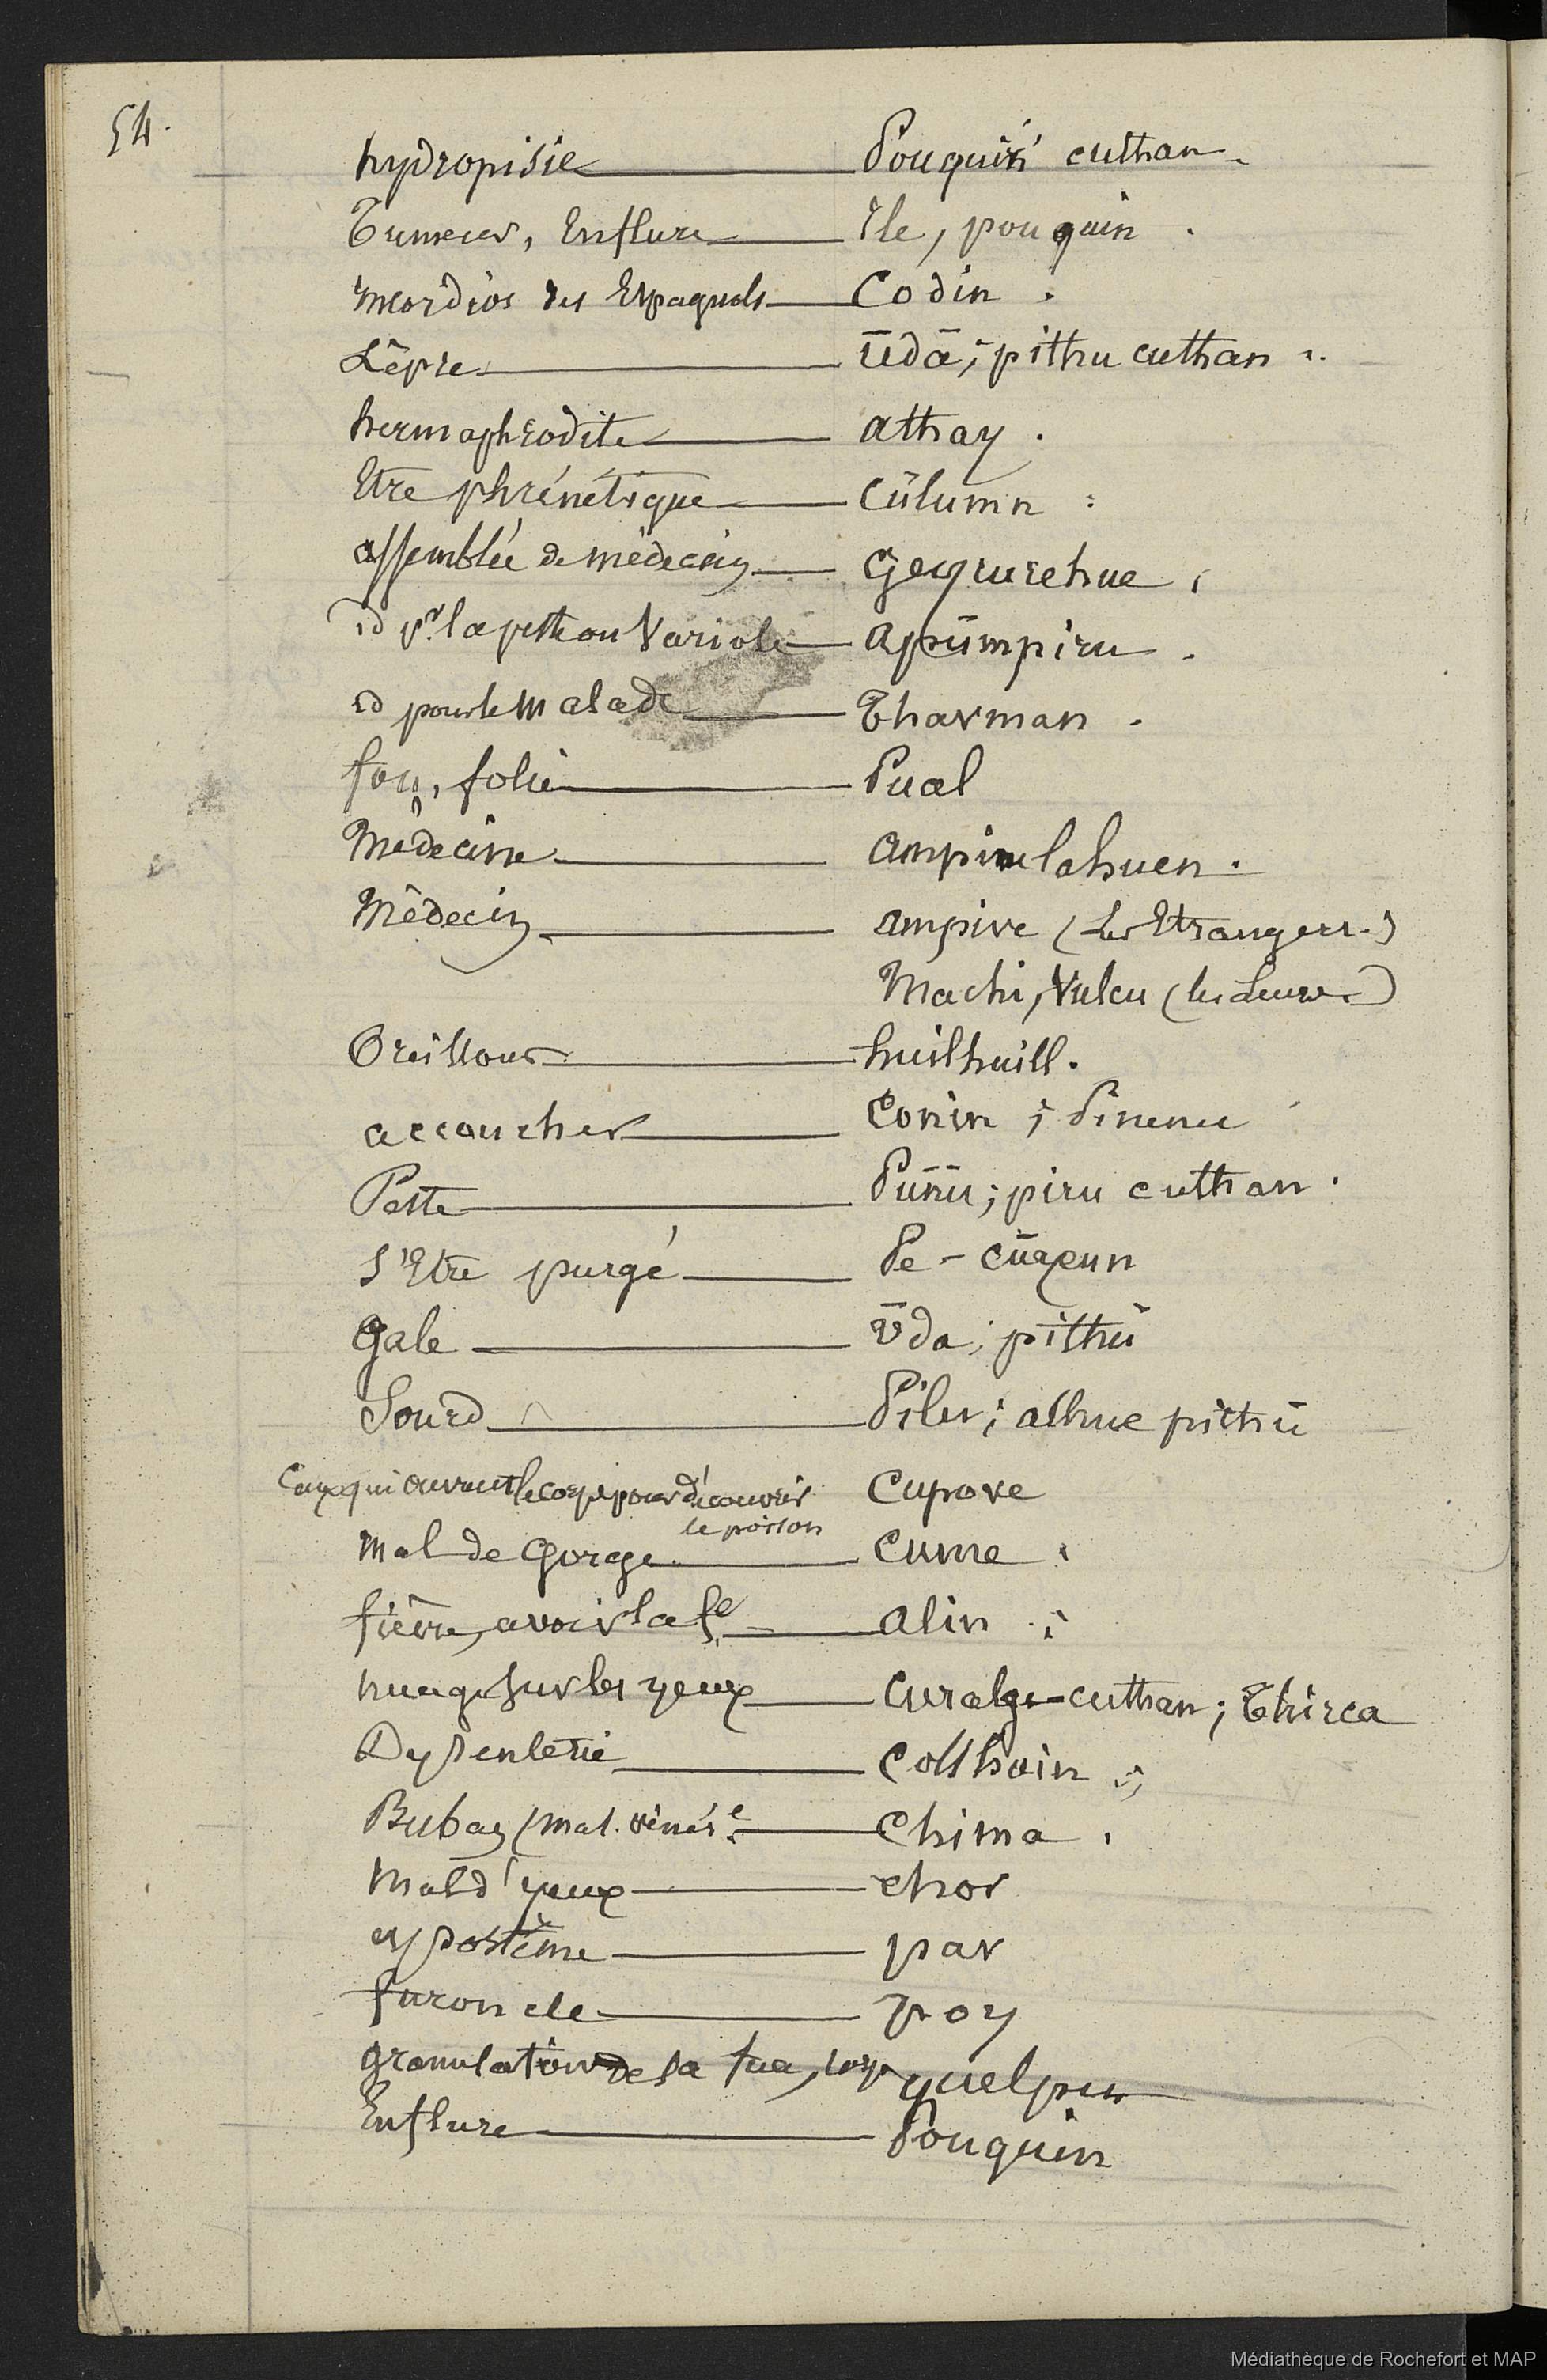 54.
hydropisie — Pouquiñ cuthan.
Tumeur, Enflure — Ile, pouquin.
mordios des Espagnols — Codin.
Lèpre — üdā; pithu cuthan.
hermaphrodite — athay.
Etre phrénétique — Cülumn.
assemblée de médecins — Geqrurehue.
id pr. la peste ou Variole — Apümpiru.
id pour le Malade — Tharman.
fou, folie — Pual
Médecine — Ampiu lahuen.
Médecin — ampive (Les Etrangers.)
Machi, Vulcu (les Leurs)
Oreillons — huilhuill.
accoucher — Conin; Pinenu
Peste — Puñu; piru cuthan.
s'Etre purgé — Pe-cüazun
Gale — üda; pithü
Sourd — Pilu; alhue pithü
Ceux qui ouvrent le corps pour découvrir Cupove
le poison
Mal de Gorge — Cume.
fièvre, avoir la fe — Alin.
nuage sur les yeux — Curalge-cuthan; Thirca
Dysenterie — Collhuin
Bubas (mal. vénére — Chima.
Mal d'yeux — chor
apostème — par
furoncle — poy
granulation de la face, corps quelpur
Enflure — Pouquin
Médiathèque de Rochefort et MAP